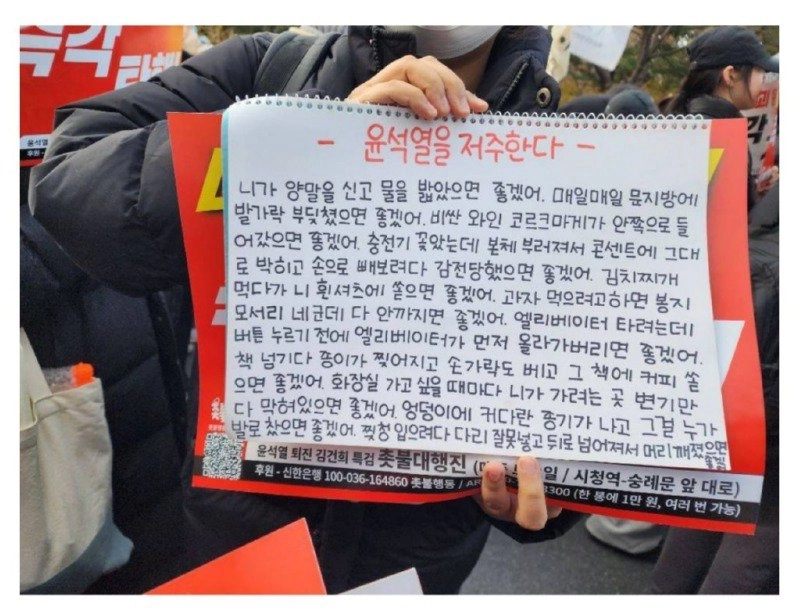 즉각
탄핵
- 윤석열을 저주한다 -
니가 양말을 신고 물을 밟았으면 좋겠어. 매일매일 문지방에
발가락 부딪쳤으면 좋겠어. 비싼 와인 코르크마개가 안쪽으로 들
어갔으면 좋겠어. 충전기 꽂았는데 본체 부러져서 콘센트에 그대
로 박히고 손으로 빼보려다 감전당했으면 좋겠어. 김치찌개
먹다가 니 흰셔츠에 쏟으면 좋겠어. 과자 먹으려고하면 봉지
모서리 네군데 다 안까지면 좋겠어. 엘리베이터 타려는데
버튼 누르기 전에 엘리베이터가 먼저 올라가버리면 좋겠어.
책 넘기다 종이가 찢어지고 손가락도 베고 그 책에 커피 쏟
으면 좋겠어. 화장실 가고싶을 때마다 니가 가려는 곳 변기만
다 막혀있으면 좋겠어. 엉덩이에 커다란 종기가 나고 그걸 누가
발로 찼으면 좋겠어. 찢청 입으려다 다리 잘못넣고 뒤로 넘어져서 머리깨졌으면
좋겠어
윤석열 퇴진 김건희 특검 촛불대행진 일 / 시청역~숭례문 앞 대로)
후원 - 신한은행 100-036-164860 촛불행동 / 3300 (한 통에 1만 원, 여러 번 가능)